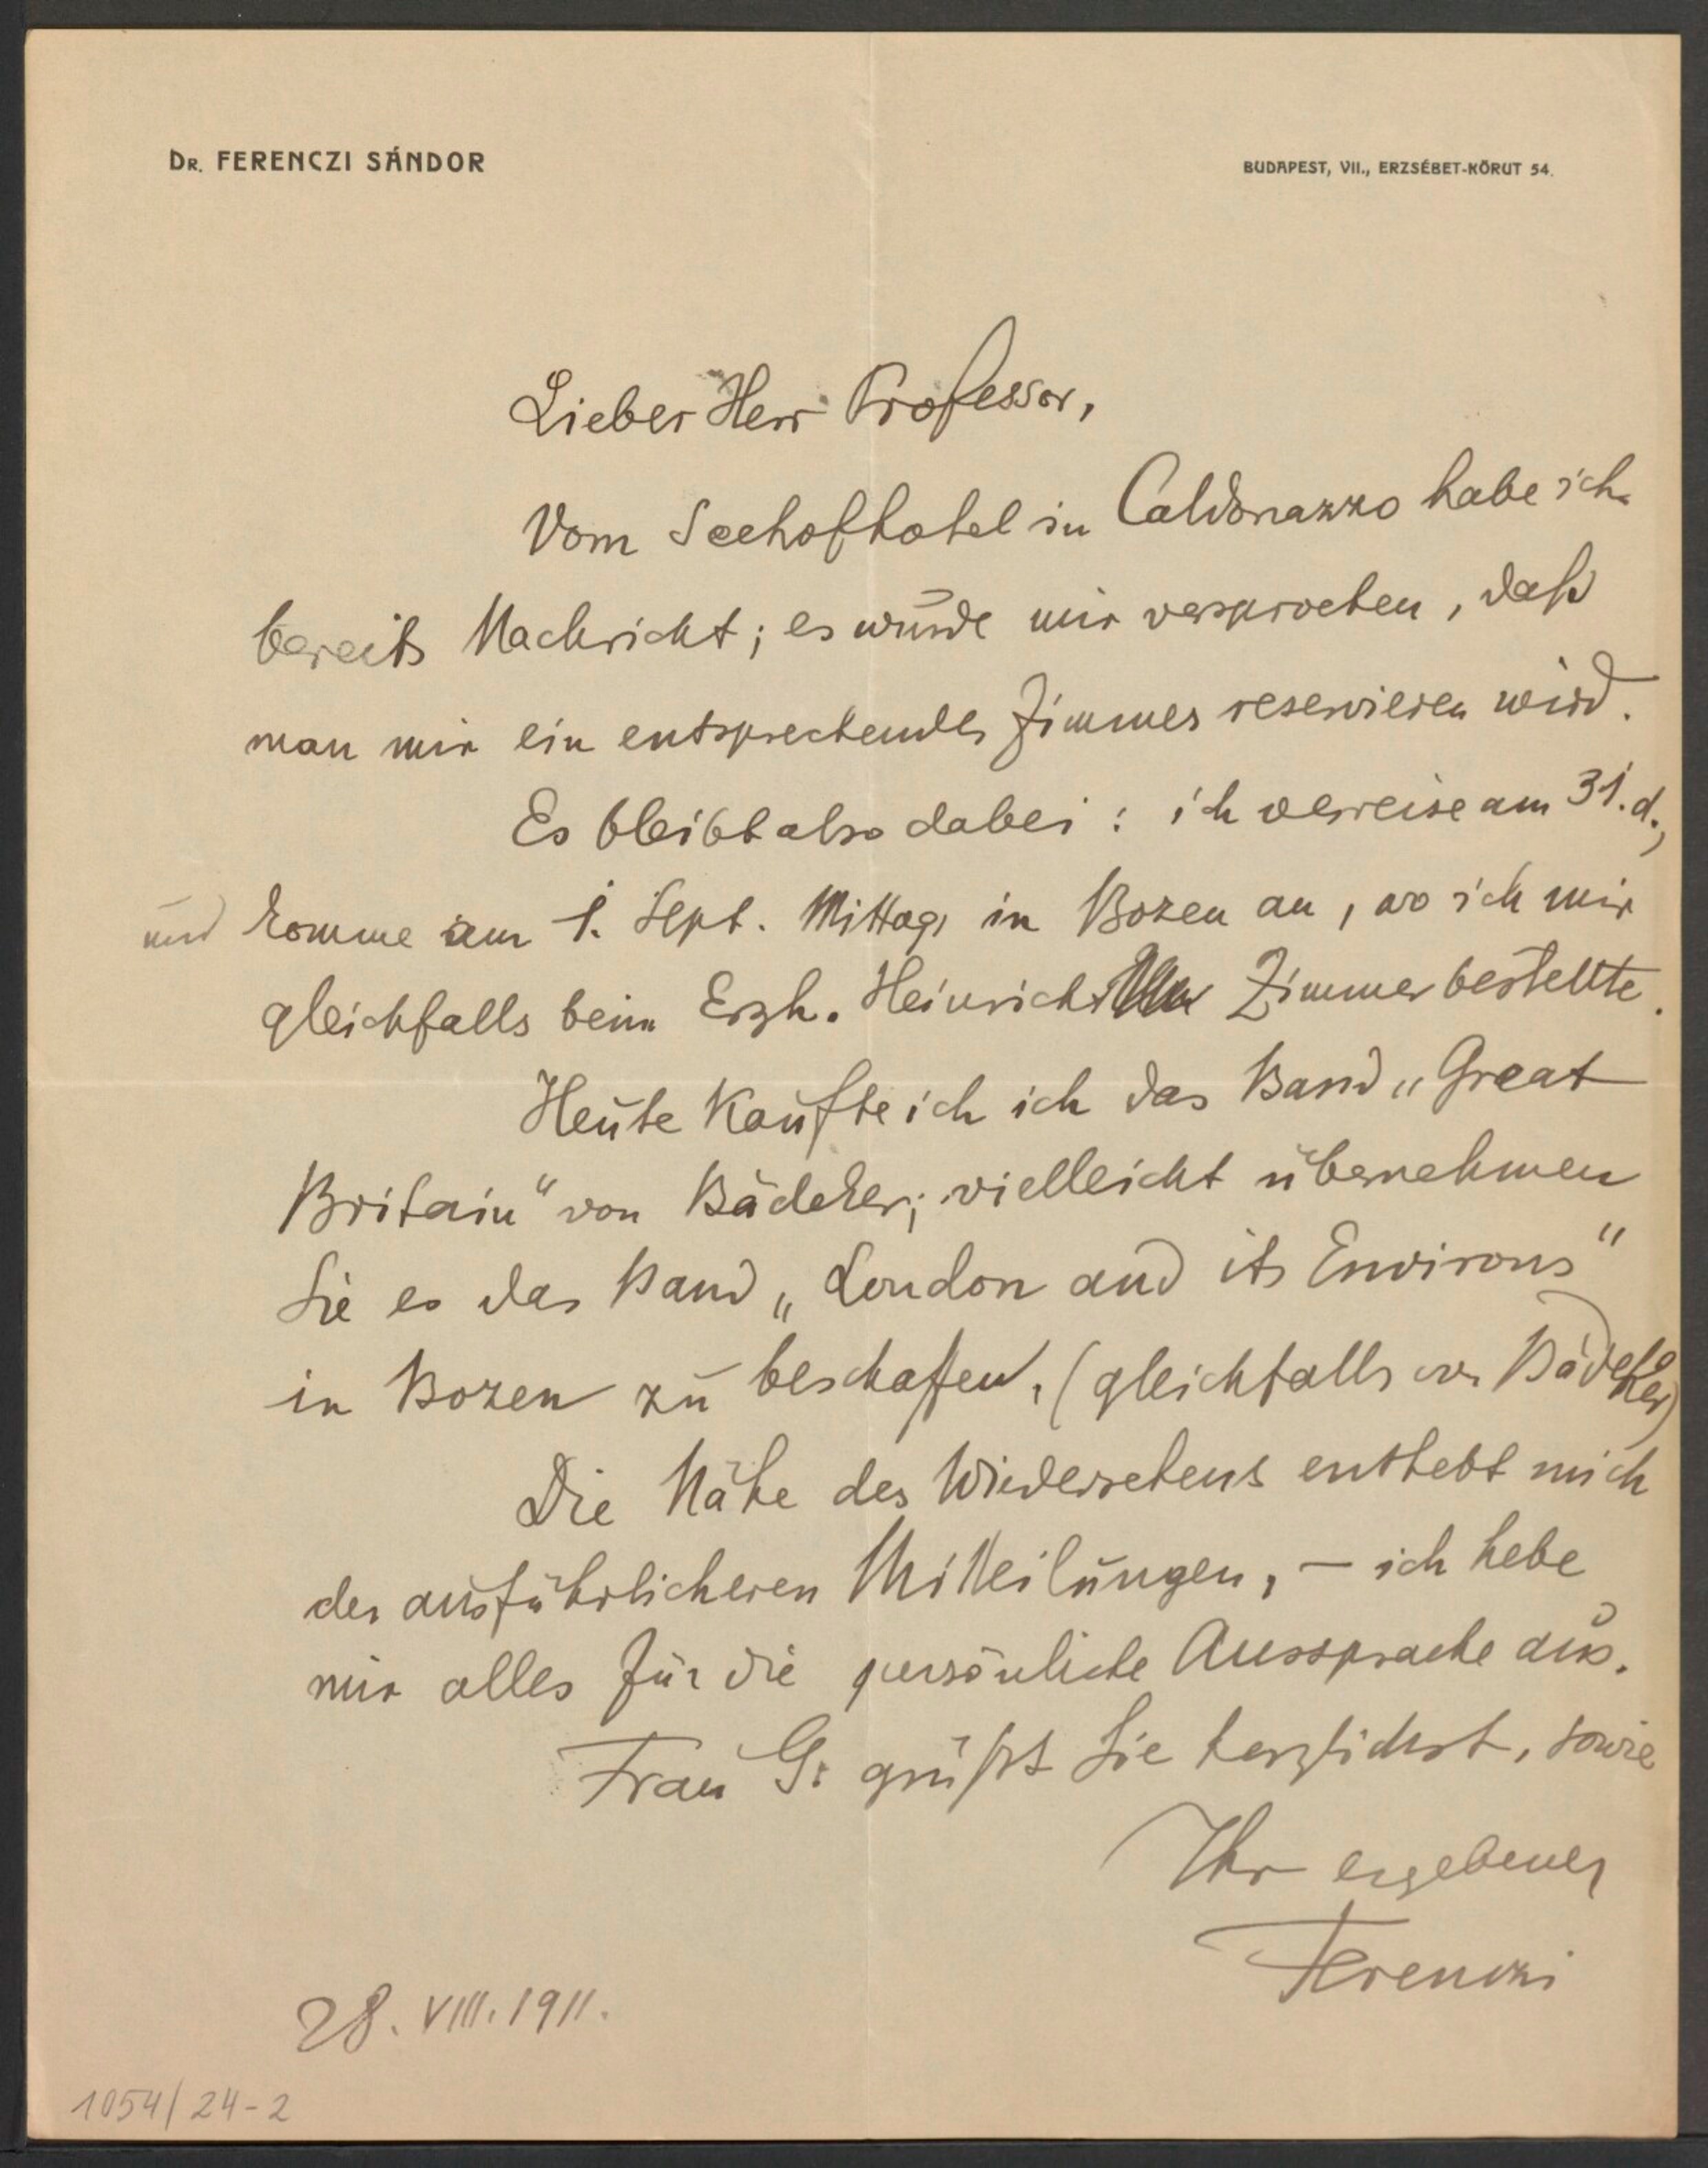 DR. FERENCZI SÁNDOR
BUDAPEST, VII., ERZSÉBET-KÖRUT 54.
Lieber Herr Professor,
Vom Seehofhotel in Caldonazzo habe ich
bereits Nachricht; es wurde mir versprochen, daß
man mir ein entsprechendes Zimmer reservieren wird.
Es bleibt also dabei: ich verreise am 31. d.,
und komme am 1. Sept. Mittag in Bozen an, wo ich mir
gleichfalls beim Erzh. Heinrich Zimmer bestellte.
Heute kaufte ich ich das Band „Great
Britain" von Bädeker; vielleicht übernehmen
Sie es das Band „London and its Environs"
in Bozen zu beschaffen. (gleichfalls von Bädeker)
Die Nähe des Wiedersehens enthebt mich
der ausführlicheren Mitteilungen, – ich hebe
mir alles für die persönliche Aussprache auf.
Frau G. grüßt Sie herzlichst, sowie
Ihr ergebener
Ferenczi
28. VIII. 1911.
1054/24-2